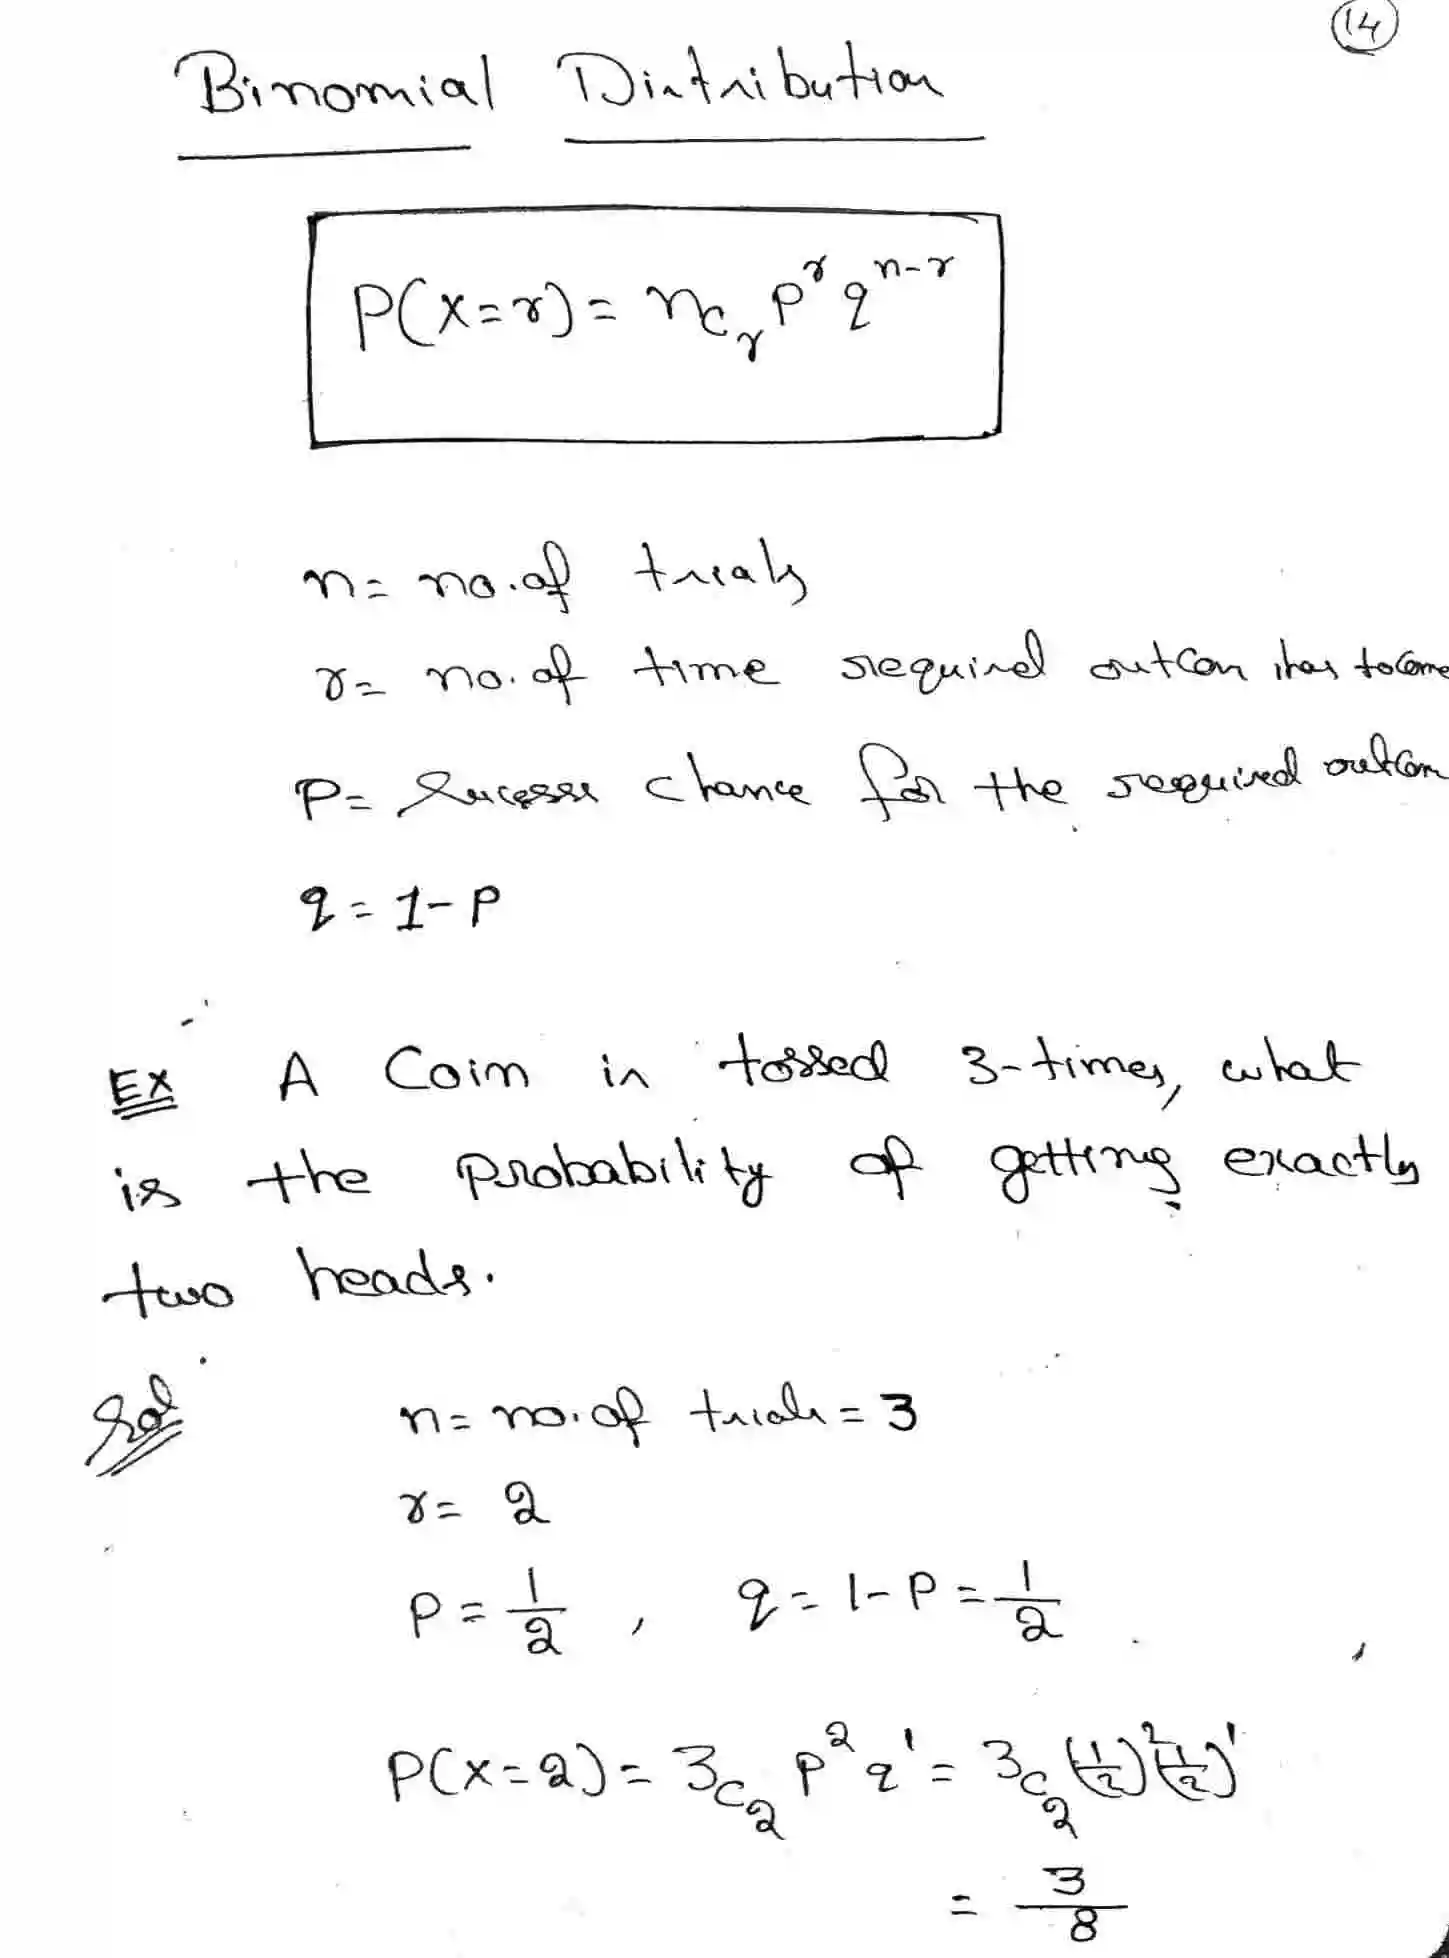 14
Binomial Distribution
P(X=r) = nCr p^r q^(n-r)
n = no. of trials
r = no. of time required outcom has to come
p = Success chance for the required outcom
q = 1-p
Ex A Coin is tossed 3-times, what
is the probability of getting exactly
two heads.
Sol n = no. of trials = 3
r = 2
p = 1/2 , q = 1-p = 1/2
P(X=2) = 3C2 p^2 q^1 = 3C2 (1/2)^2 (1/2)^1
= 3/8